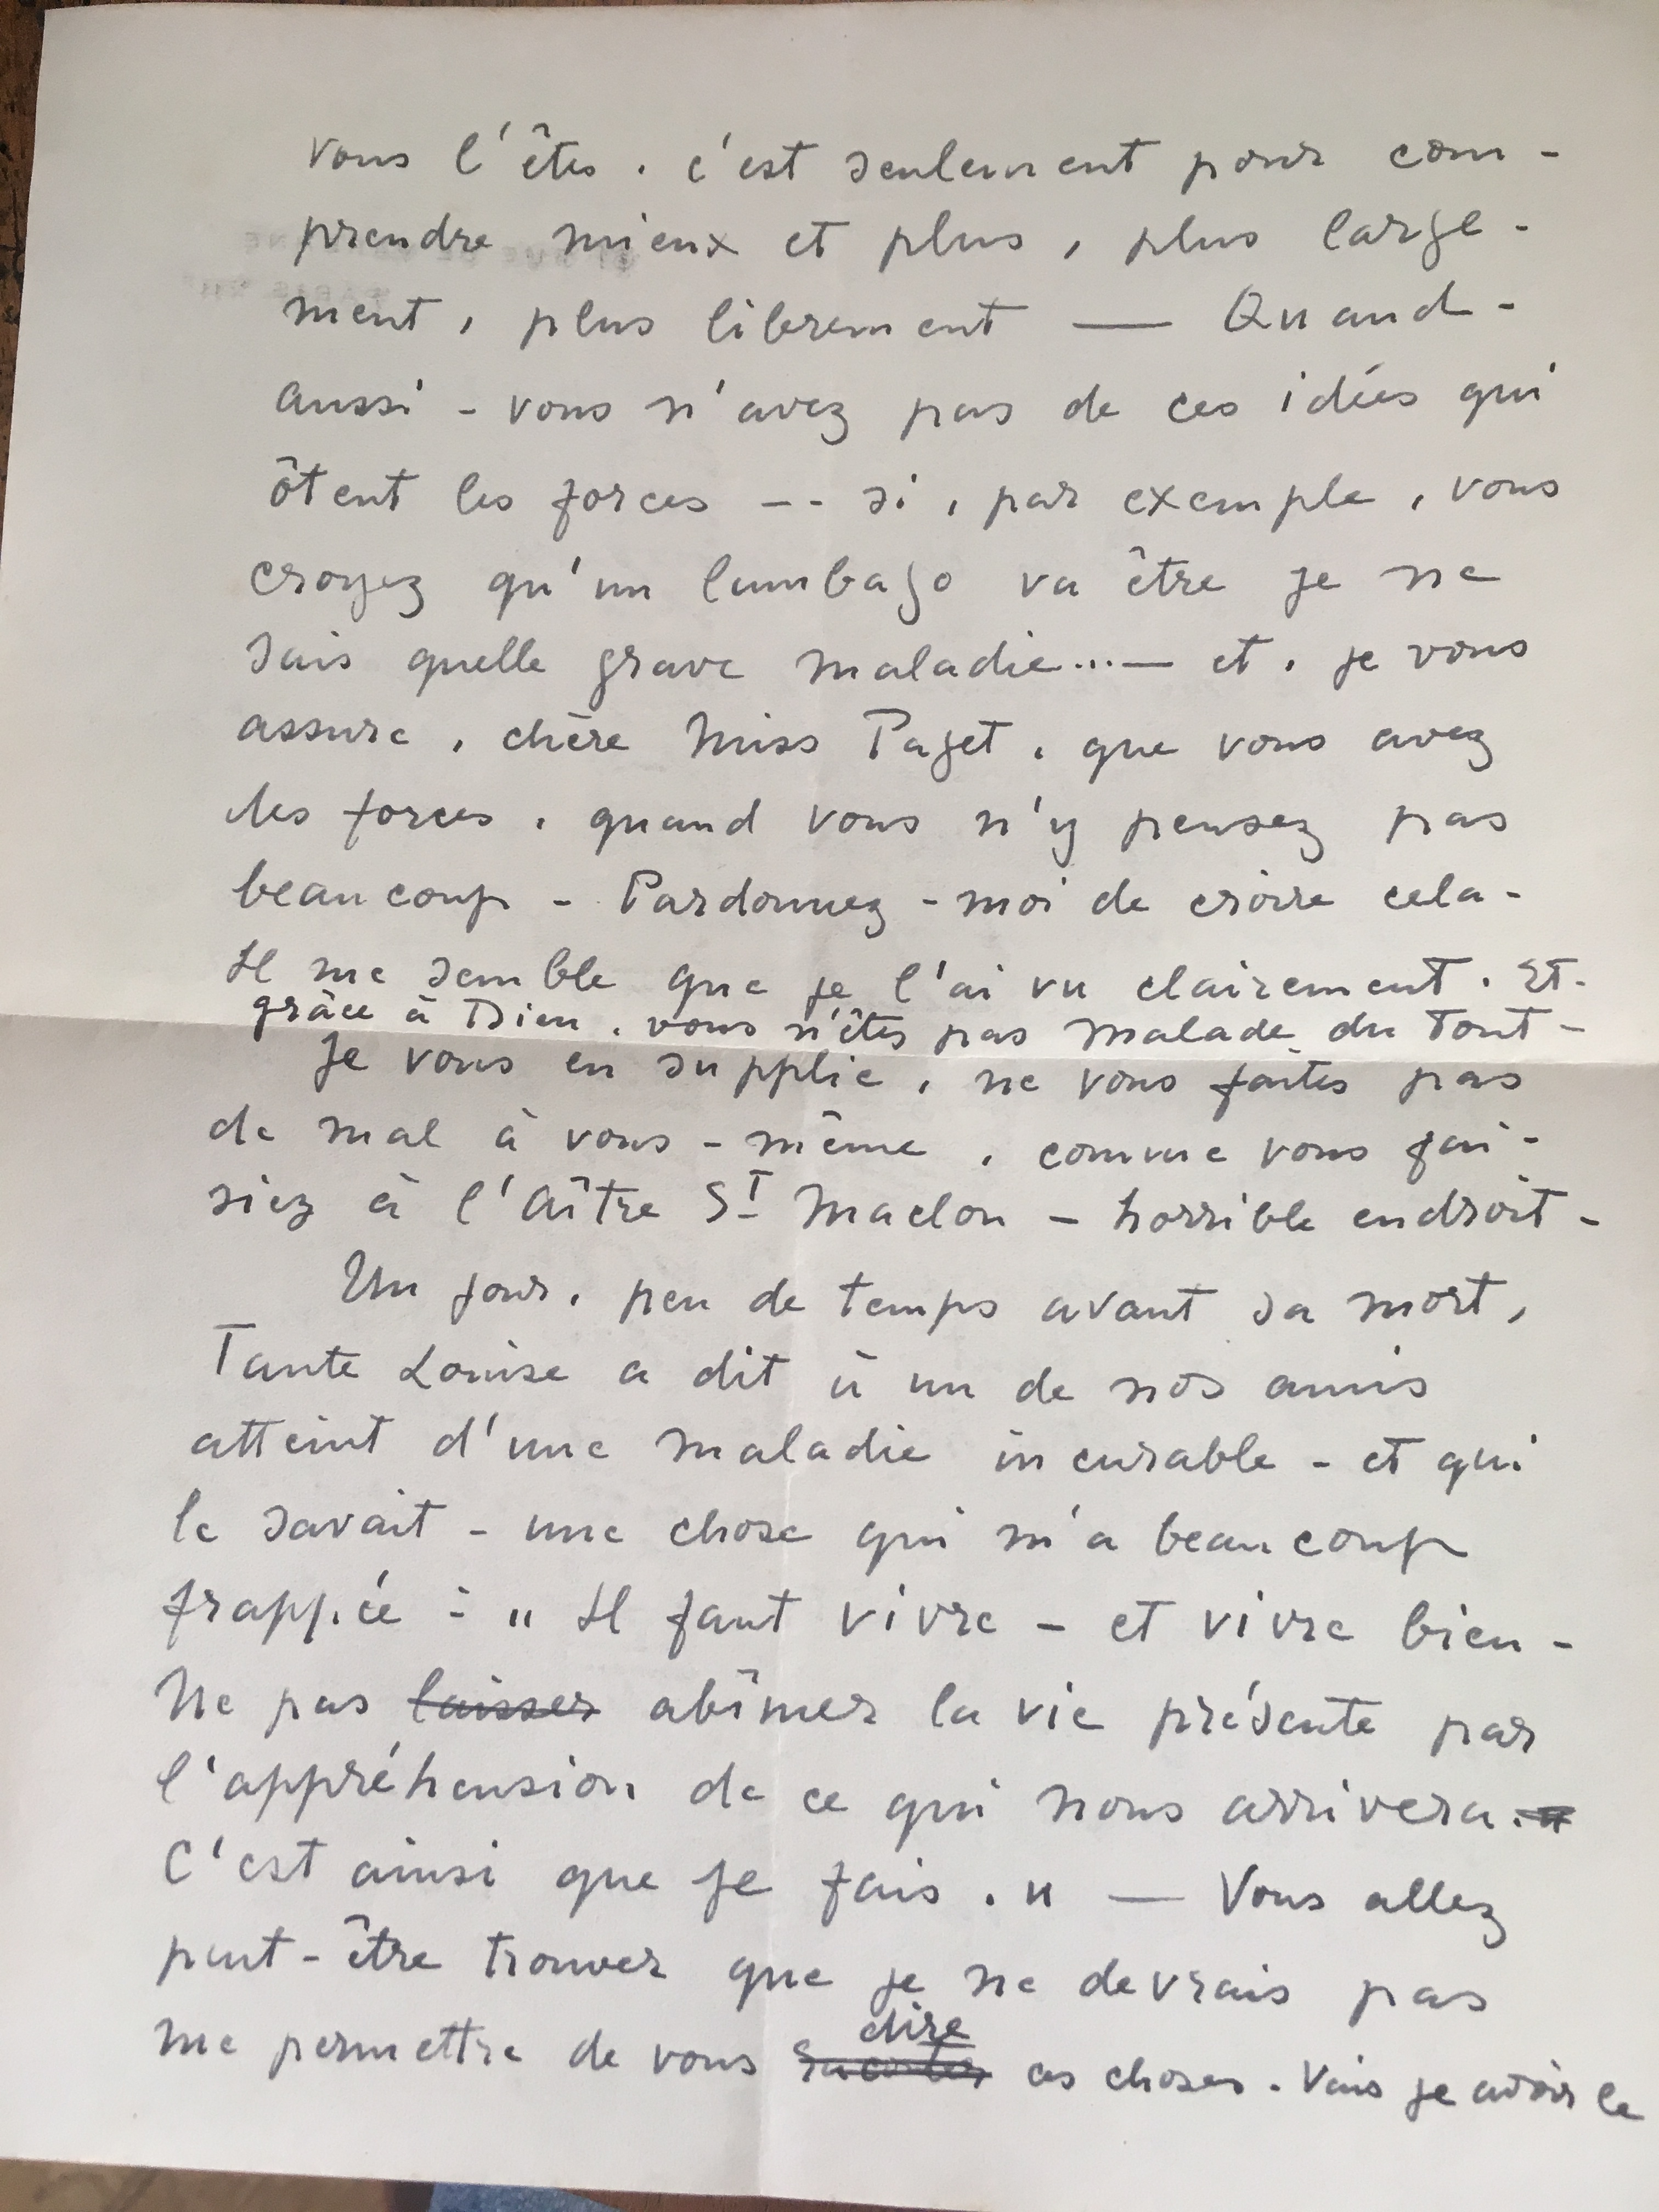 vous l'êtes. c'est seulement pour com-
prendre mieux et plus, plus large-
ment, plus librement — Quand-
aussi - vous n'avez pas de ces idées qui
ôtent les forces -- si, par exemple, vous
croyez qu'un lumbago va être je ne
sais quelle grave maladie...— et, je vous
assure, chère Miss Paget, que vous avez
des forces, quand vous n'y pensez pas
beaucoup - Pardonnez-moi de croire cela-
Il me semble que je l'ai vu clairement. Et-
grâce à Dieu, vous n'êtes pas malade du tout-
Je vous en supplie, ne vous faites pas
de mal à vous-même, comme vous fai-
siez à l'Aître St Maclou - horrible endroit-
Un jour, peu de temps avant sa mort,
Tante Louise a dit à un de nos amis
atteint d'une maladie incurable - et qui
le savait - une chose qui m'a beaucoup
frappée : " Il faut vivre - et vivre bien -
Ne pas laisser abîmer la vie présente par
l'appréhension de ce qui nous arrivera."
C'est ainsi que je fais. " — Vous allez
peut-être trouver que je ne devrais pas
dire
me permettre de vous raconter ces choses. Vais je avoir le